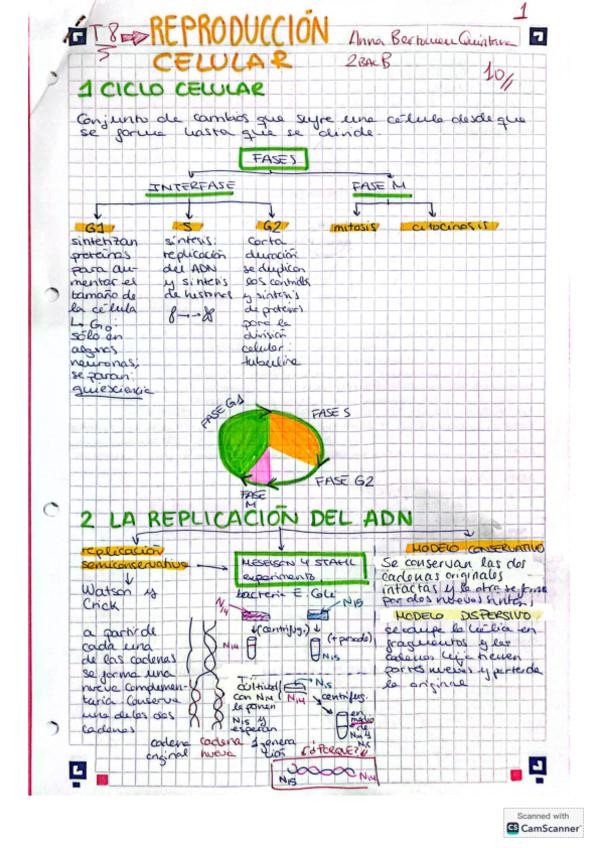 1
T8 REPRODUCCIÓN
5
CELULAR
Anna
2BACB
10//
1 CICLO CELULAR
Conjunto de cambios que sufre una célula desde que
se forma hasta que se divide.
FASES
INTERFASE
FASE M
G1
sintetizan
proteínas
para au-
mentar el
tamaño de
la célula
↳ G0:
sólo en
algunas
neuronas;
se paran:
quiescencia
S
síntesis:
replicación
del ADN
y síntesis
de histonas
G2
corta
duración
se duplican
los centriolos
y síntesis
de proteínas
para la
división
celular:
tubulina
mitosis
citocinesis
FASE G1
FASE S
FASE G2
FASE
M
2 LA REPLICACIÓN DEL ADN
replicación
semiconservativa
Watson y
Crick
a partir de
cada una
de las cadenas
se forma una
nueva complemen-
taria. Conserva
una de las dos
cadenas
cadena
original
cadena
nueva
MESELSON Y STAHL
experimento
bacteria E. Coli
N14
N15
(centrifug.)
N14
(+ pesado)
N15
cultivad
con N14
la ponen
N15 y
esperan
1 genera
ción
N15
N14
centrifug.
en
medio
de
N14 y
N15
¿PORQUE?
N15
N14
MODELO CONSERVATIVO
Se conservan las dos
cadenas originales
intactas y la otra se forma
por dos nuevas
MODELO DISPERSIVO
se rompe la hélice en
fragmentos y las
cadenas hija tienen
partes nuevas y partes de
la original
Scanned with
CS CamScanner